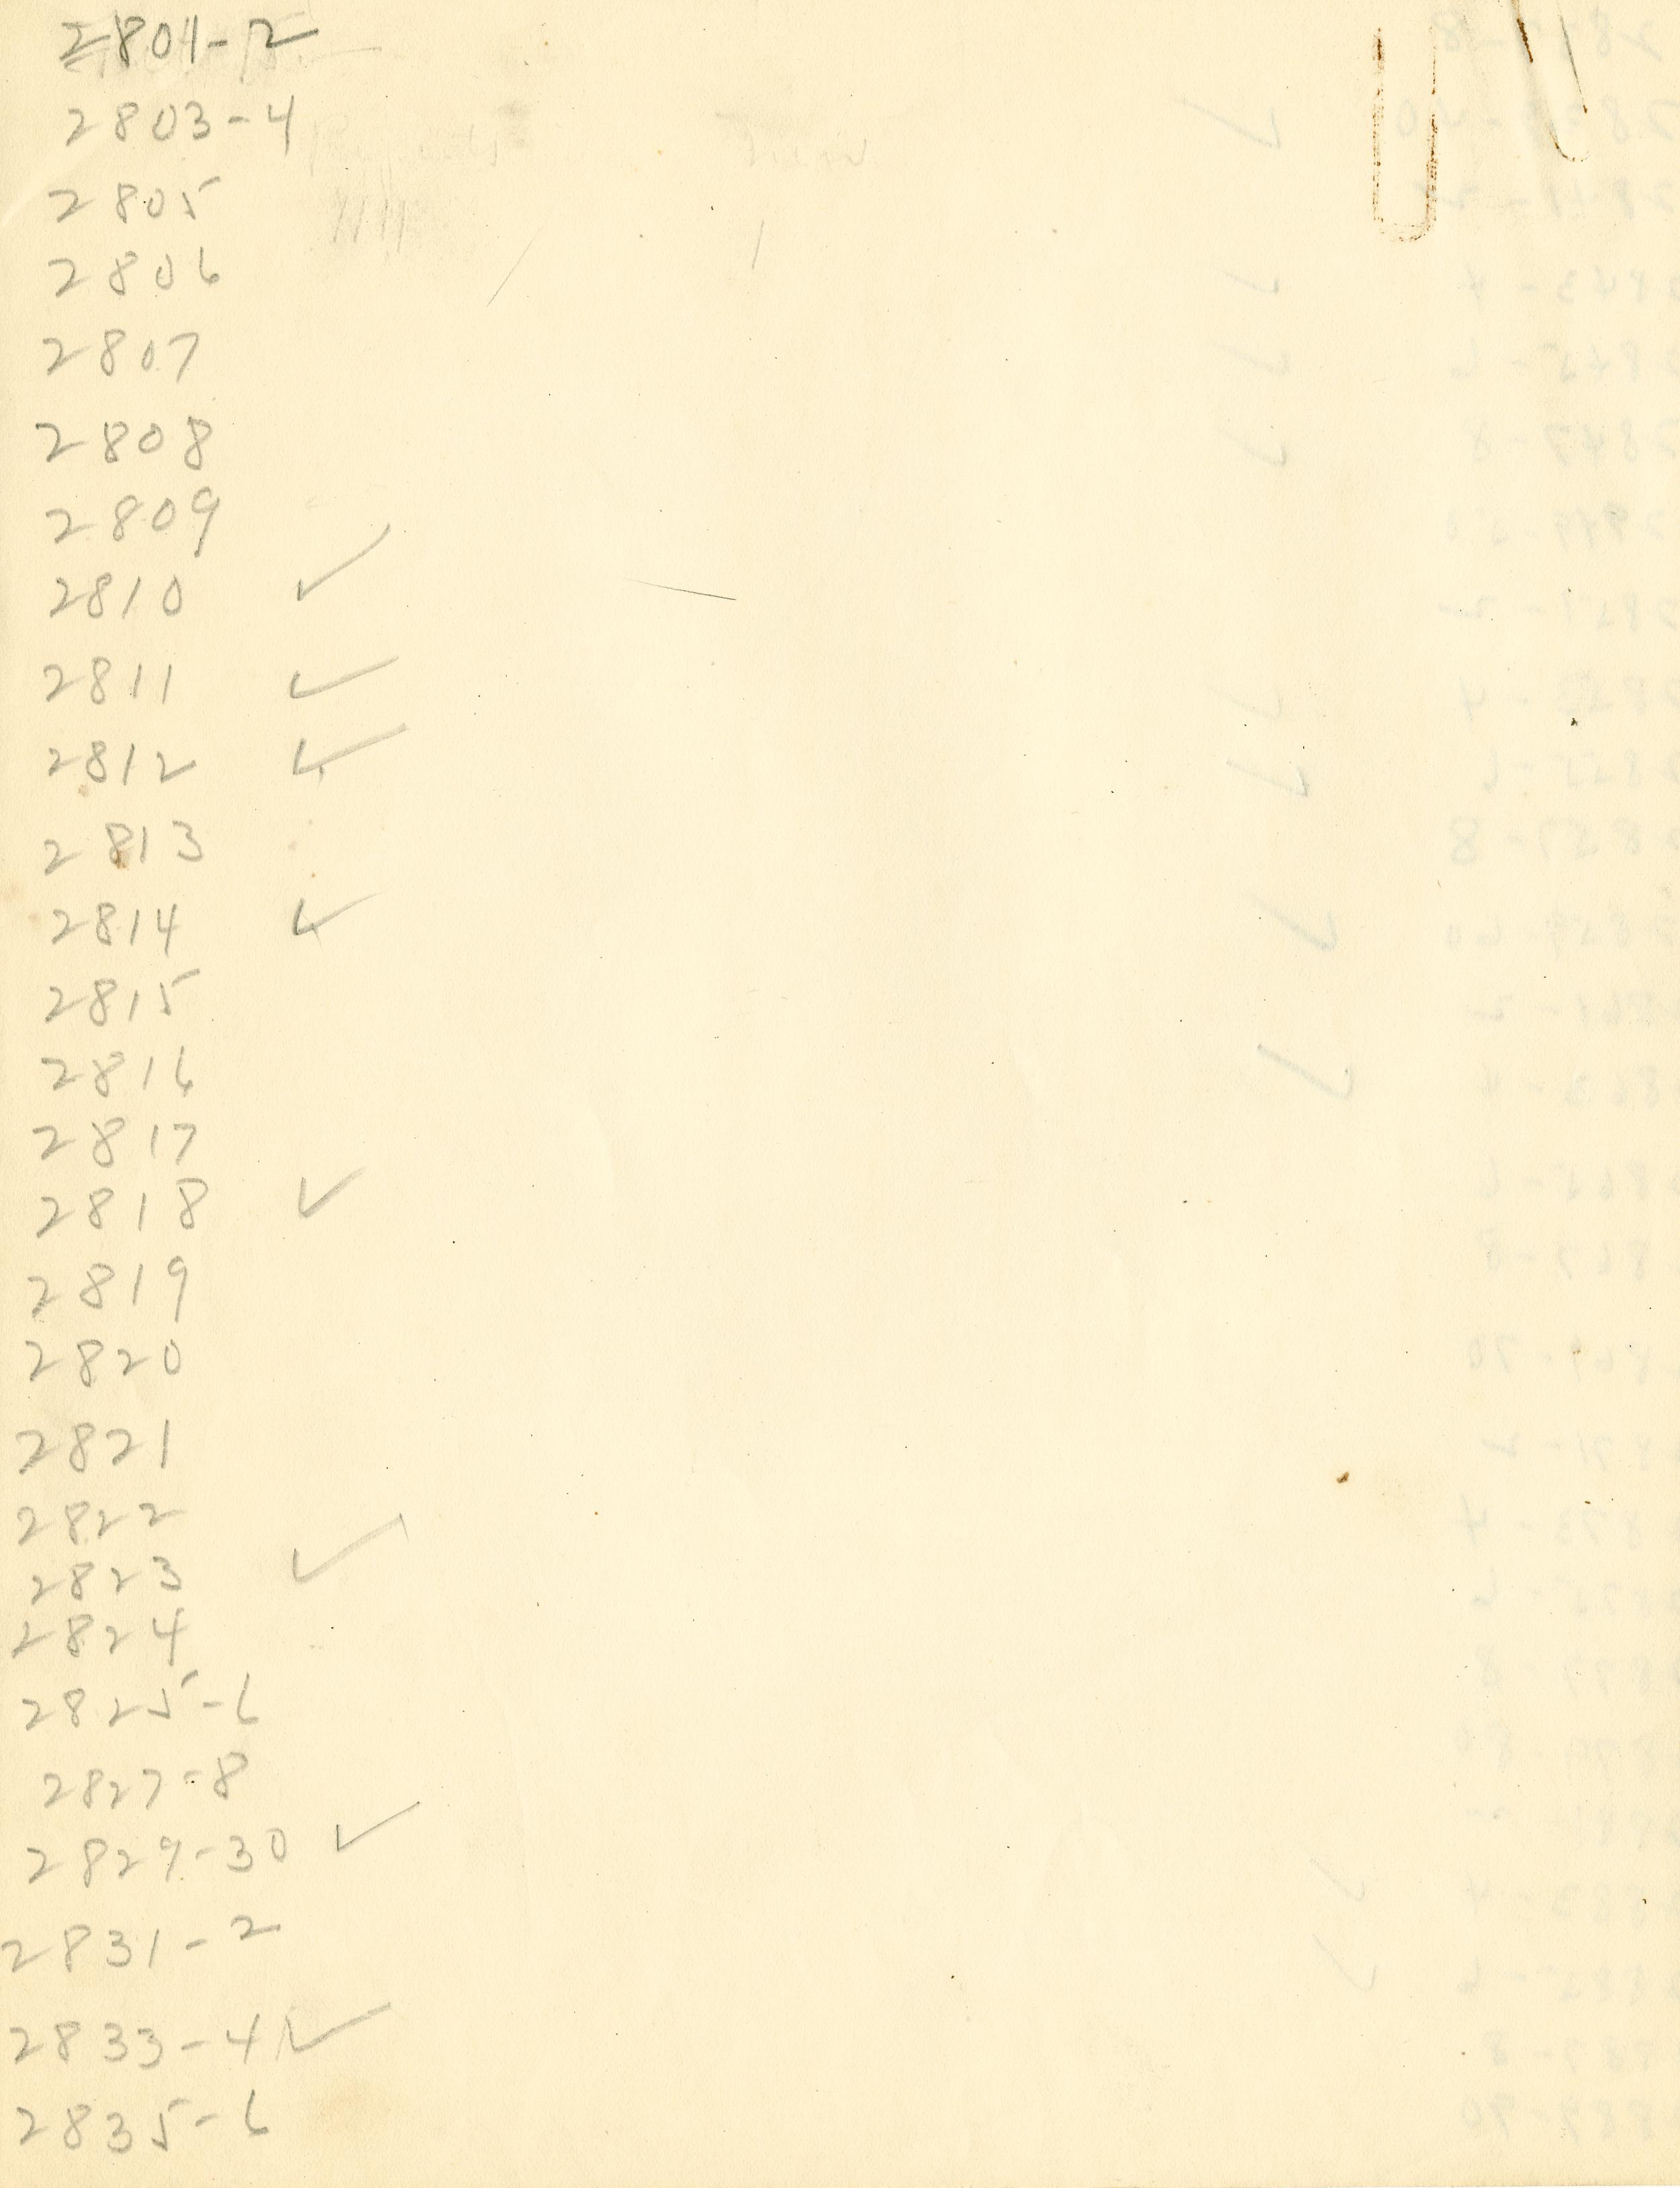 2801-2
2803-4
2805
2806
2807
2808
2809
2810 ✓
2811 ✓
2812 ✓
2813
2814 ✓
2815
2816
2817
2818 ✓
2819
2820
2821
2822
2823 ✓
2824
2825-6
2827-8
2829-30 ✓
2831-2
2833-4 ✓
2835-6